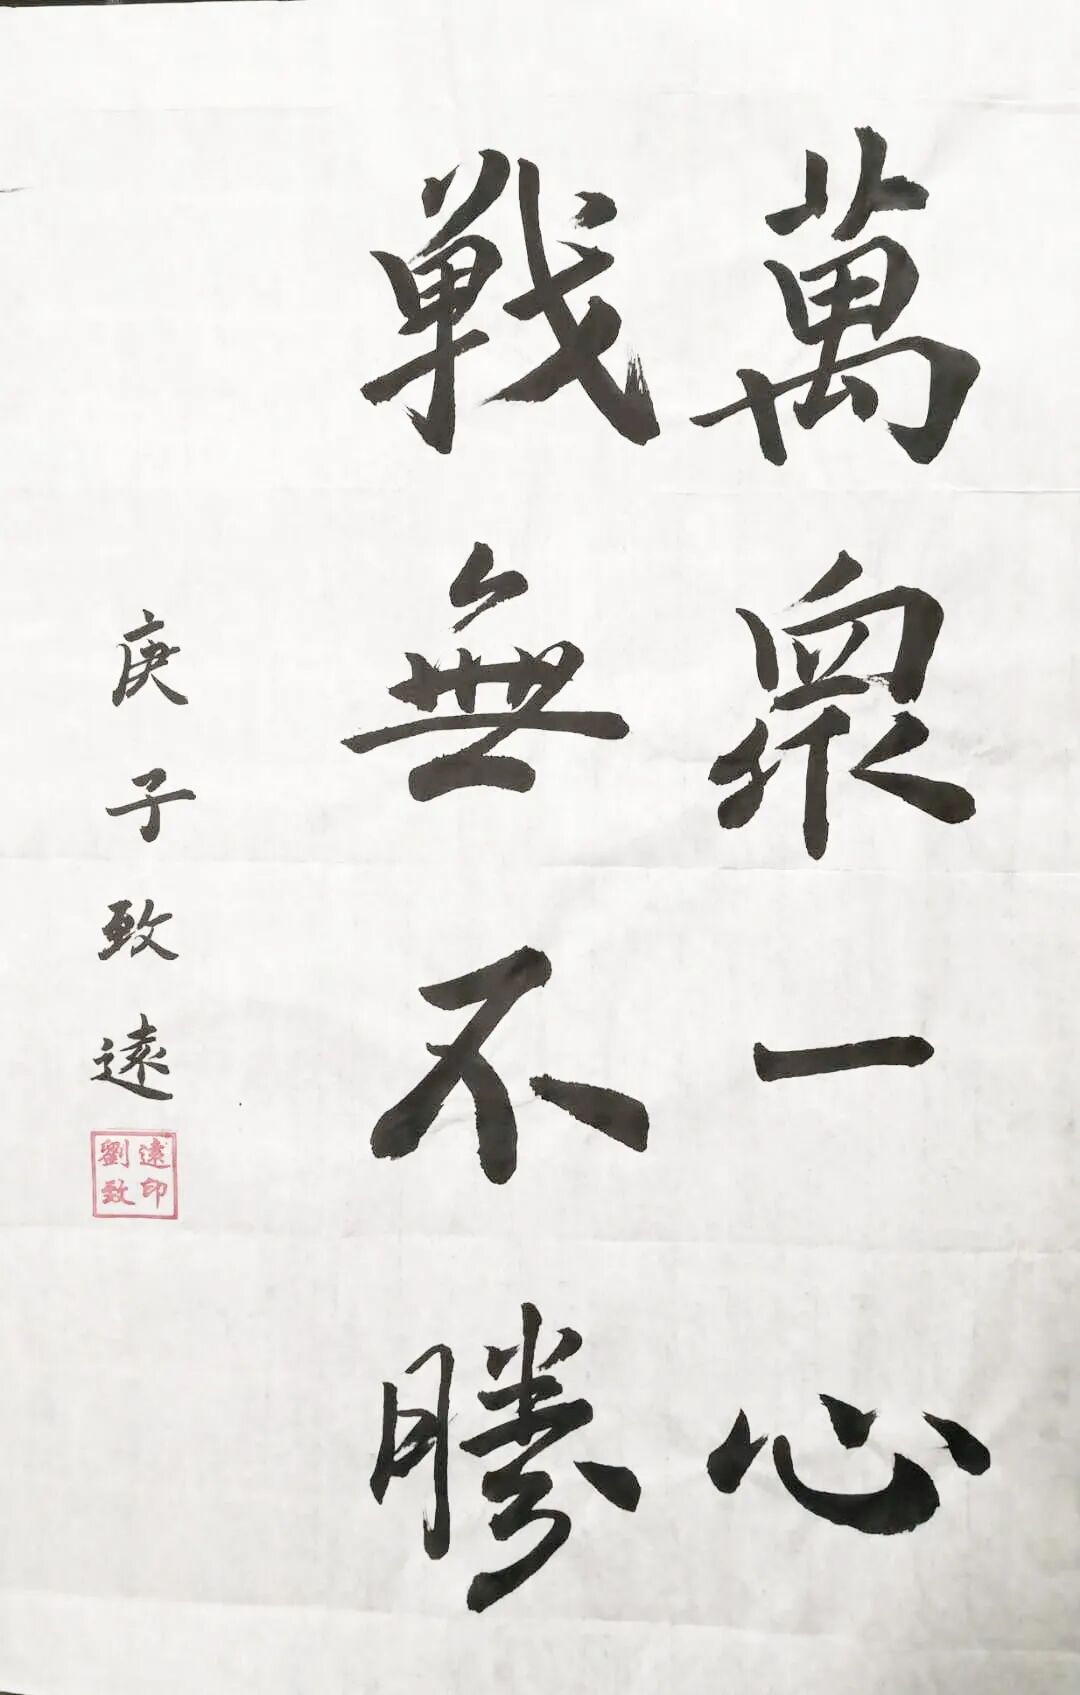 萬眾一心
戰無不勝
庚子致遠
劉致遠印